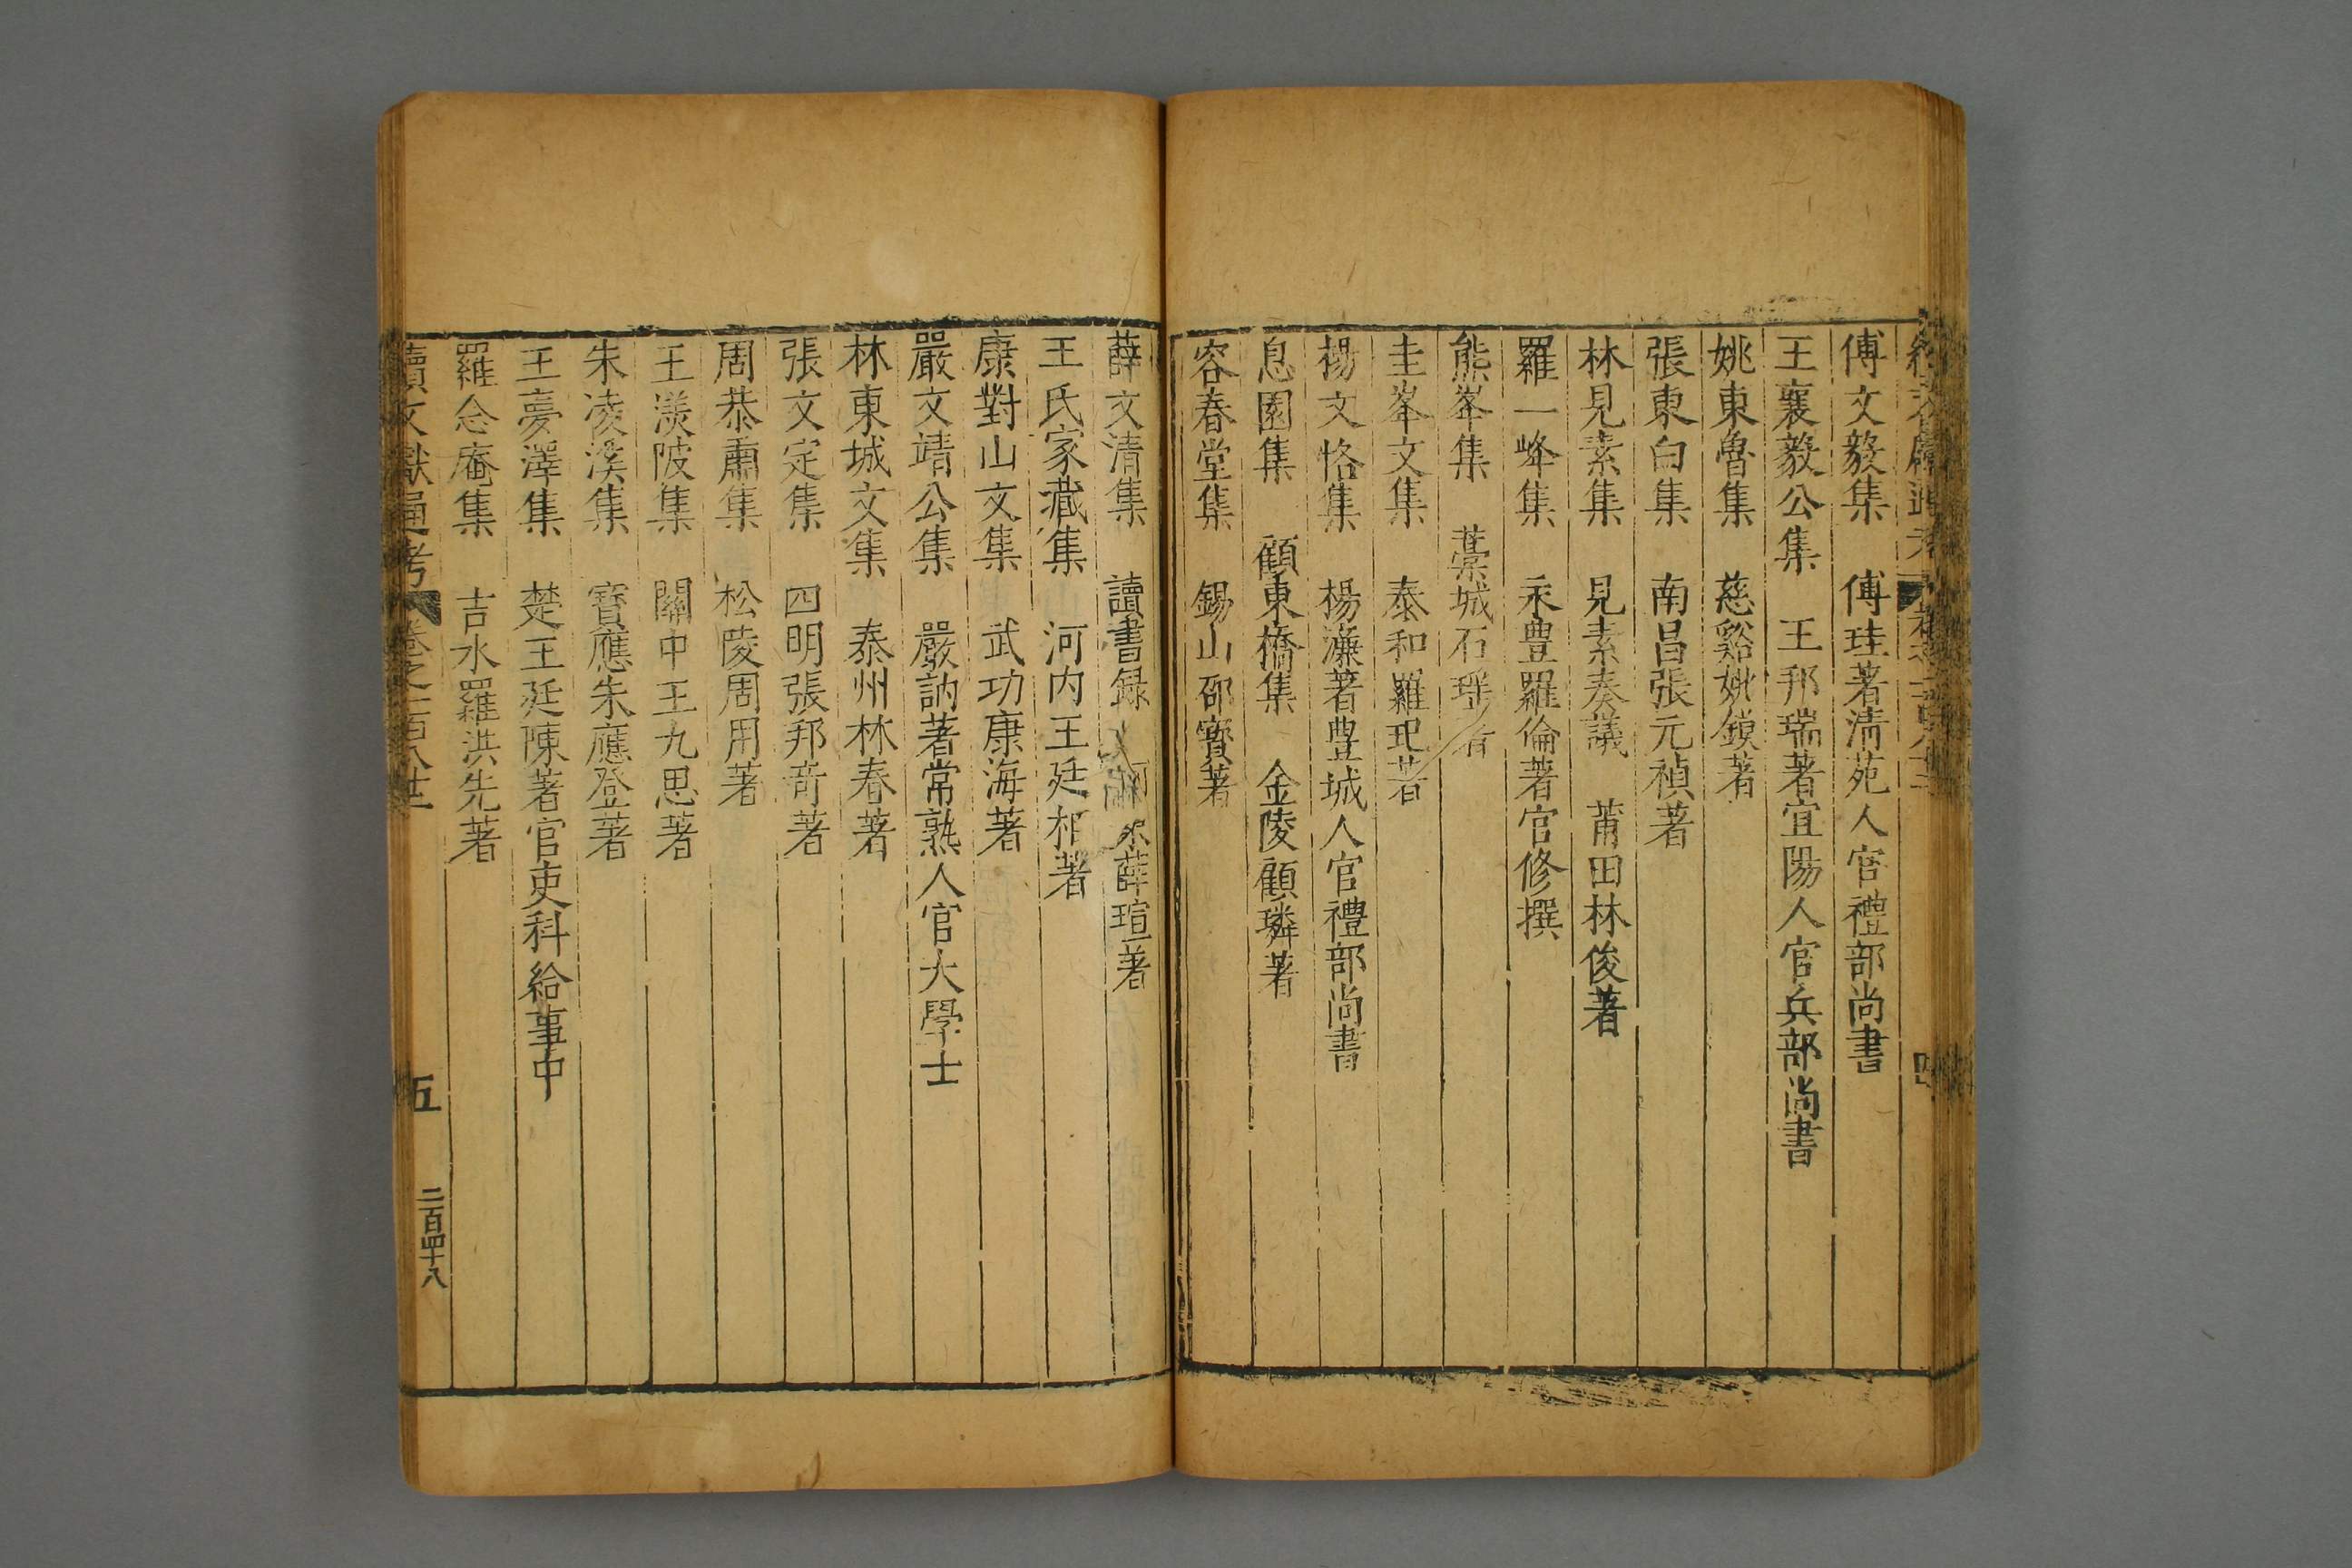 傅文毅集　傅珪著清苑人官禮部尚書
王襄毅公集　王邦瑞著宜陽人官兵部尚書
姚東魯集　慈谿姚鏌著
張東白集　南昌張元禎著
林見素集　見素奏議　莆田林俊著
羅一峰集　永豊羅倫著官修撰
熊峯集　藁城石珤著
圭峯文集　泰和羅玘著
楊文恪集　楊濂著豊城人官禮部尚書
息園集　顧東橋集　金陵顧璘著
容春堂集　錫山邵寳著
薛文清集　讀書録　薛瑄著
王氏家藏集　河内王廷相著
康對山文集　武功康海著
嚴文靖公集　嚴訥著常熟人官大學士
林東城文集　泰州林春著
張文定集　四明張邦竒著
周恭肅集　松陵周用著
王渼陂集　關中王九思著
朱凌溪集　寳應朱應登著
王夢澤集　楚王廷陳著官吏科給事中
羅念庵集　吉水羅洪先著
續文獻通考　卷之一百八十三　五　二百四十八